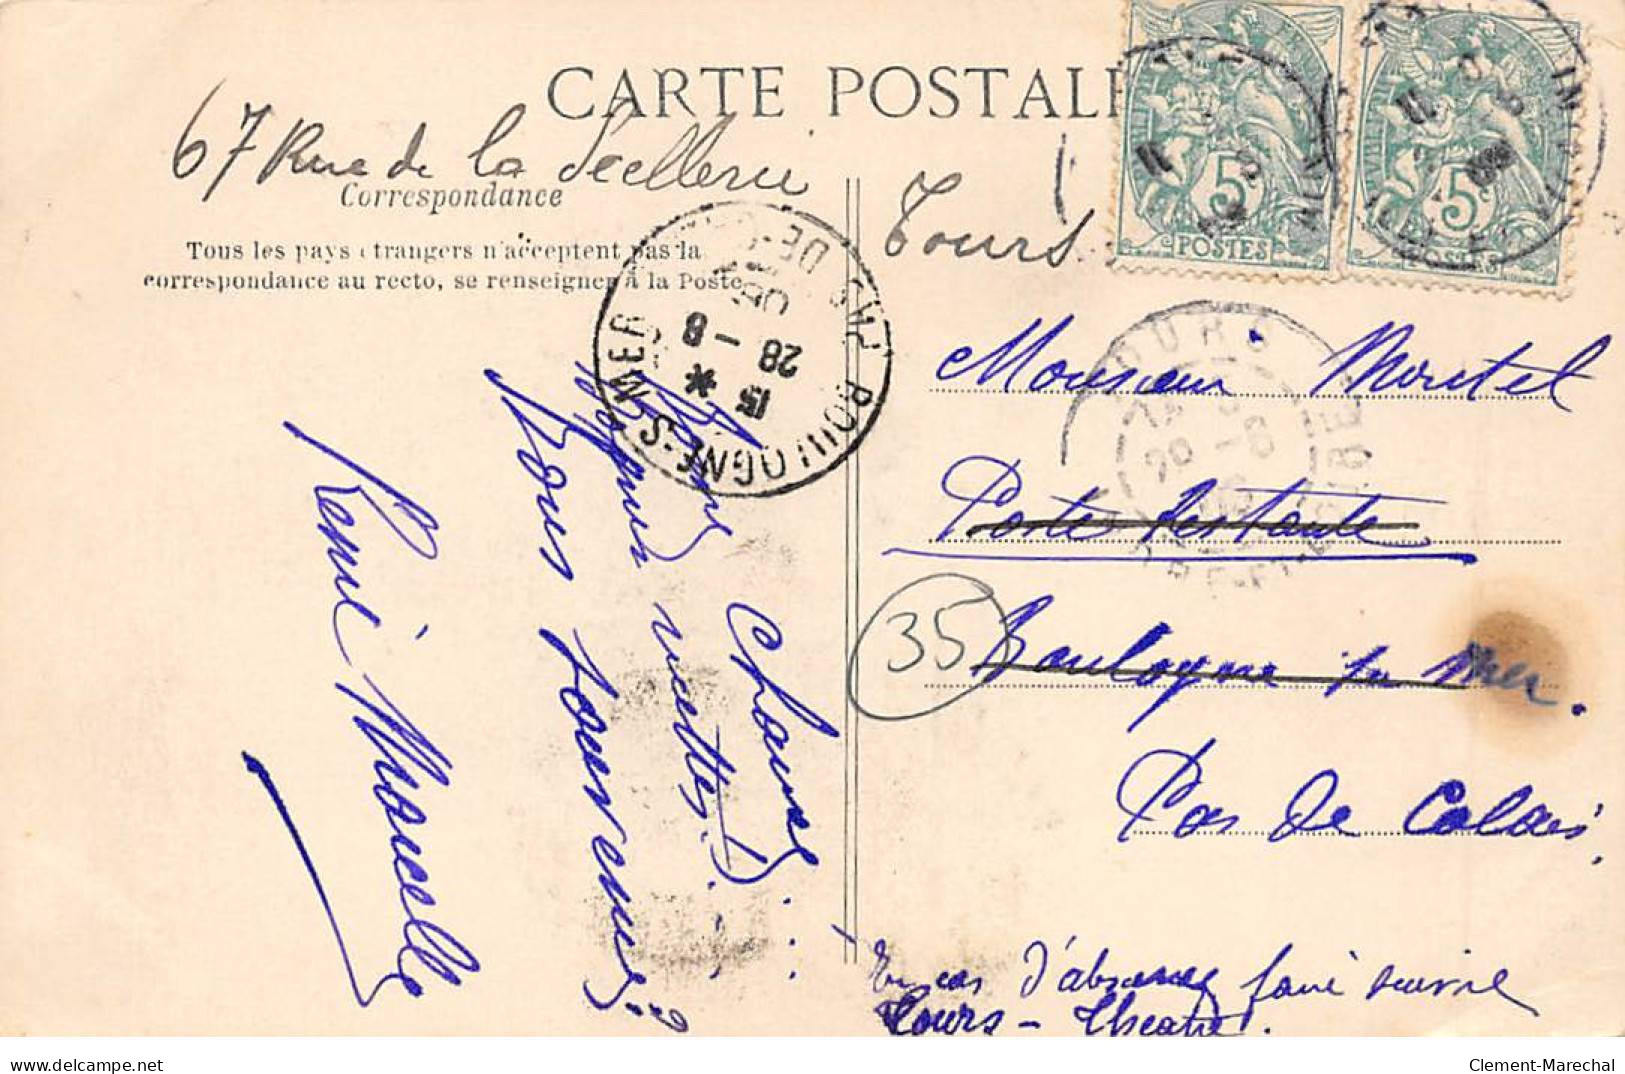 CARTE POSTALE
67 Rue de la Scellerie
Tours
Correspondance
Tous les pays étrangers n'acceptent pas la
correspondance au recto, se renseigner à la Poste
5
POSTES
5
POSTES
BOULOGNE-S-MER
PAS-DE-
15 *
28 - 8
TOURS
Monsieur
Poste Restante
Boulogne sur Mer.
Pas de Calais.
35
En cas d'absence faire suivre
Tours - Théatre.
chance
Vous souvenez?
René Marcelle
delcampe.net
Clement-Marechal